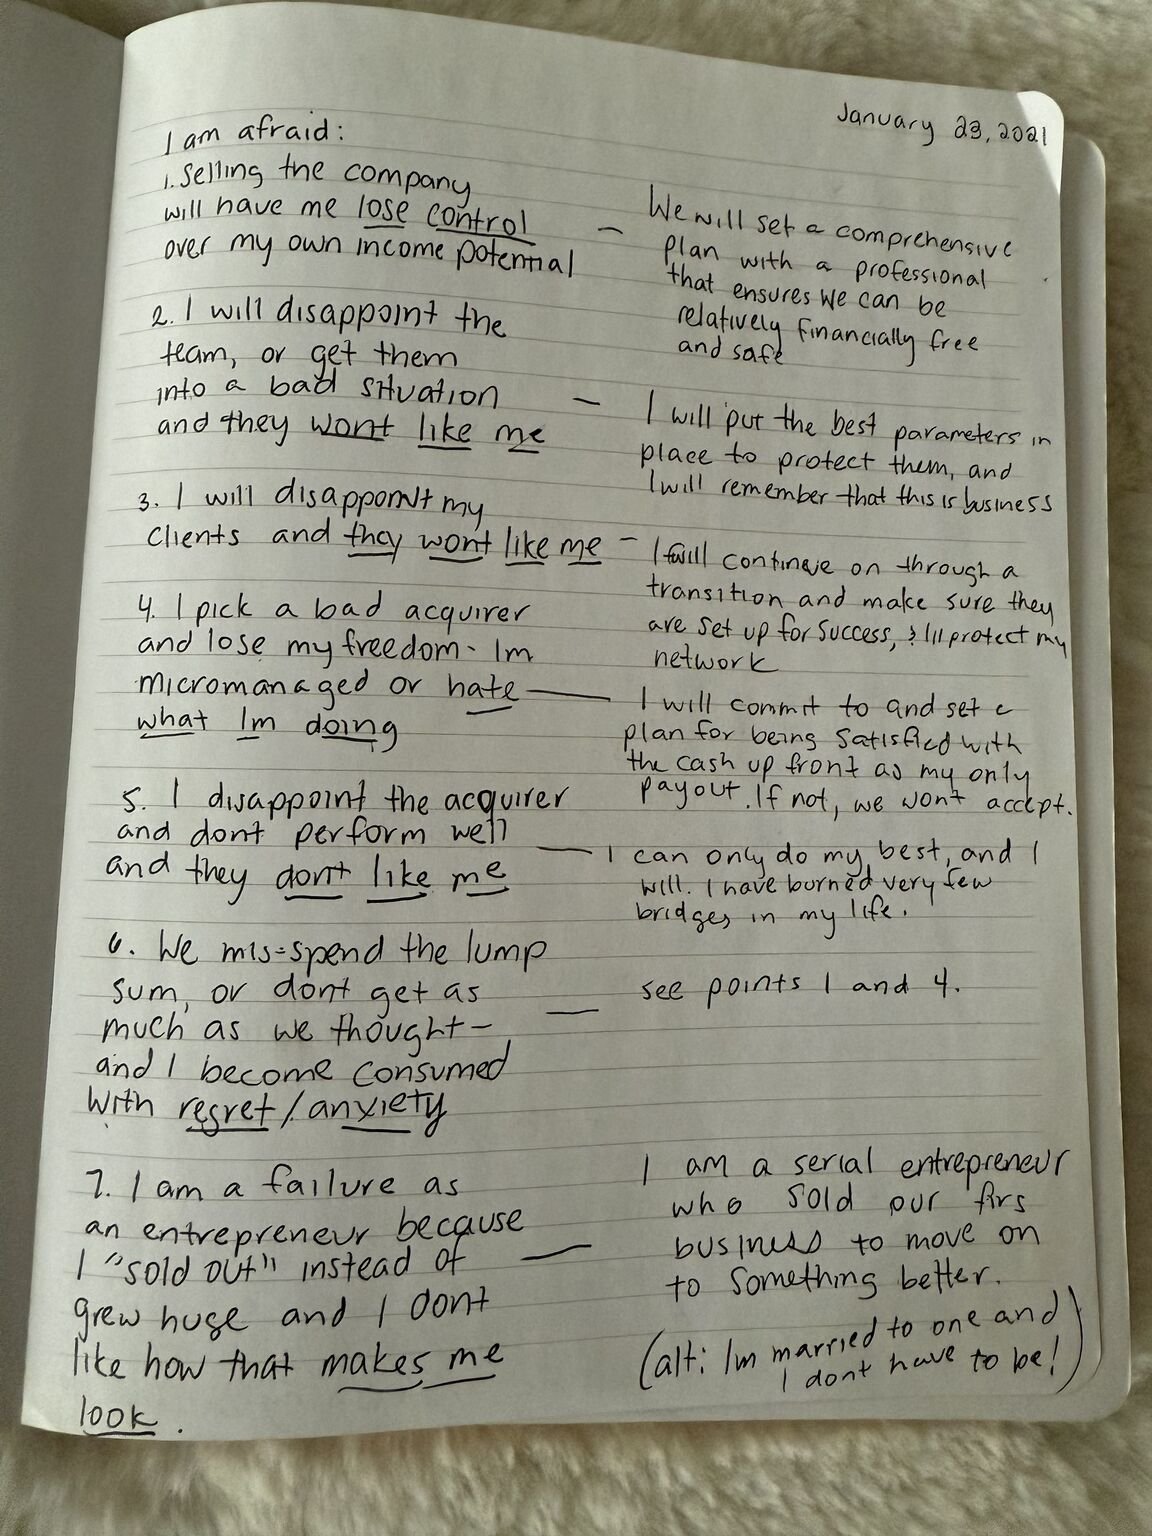 January 23, 2021
I am afraid:
1. Selling the company
will have me lose control
over my own income potential
—
We will set a comprehensive
plan with a professional
that ensures we can be
relatively financially free
and safe
2. I will disappoint the
team, or get them
into a bad situation
and they wont like me
—
I will put the best parameters in
place to protect them, and
I will remember that this is business
3. I will disappoint my
clients and they wont like me
—
I will continue on through a
transition and make sure they
are set up for success, & Ill protect my
network
4. I pick a bad acquirer
and lose my freedom - Im
micromanaged or hate
what Im doing
—
I will commit to and set a
plan for being satisfied with
the cash up front as my only
payout. If not, we won't accept.
5. I disappoint the acquirer
and dont perform well
and they dont like me
—
I can only do my best, and I
will. I have burned very few
bridges in my life.
6. We mis-spend the lump
sum, or dont get as
much as we thought -
and I become consumed
with regret/anxiety
—
see points 1 and 4.
7. I am a failure as
an entrepreneur because
I "sold out" instead of
grew huge and I dont
like how that makes me
look.
—
I am a serial entrepreneur
who sold our firs
business to move on
to something better.
(alt: Im married to one and
I dont have to be!)